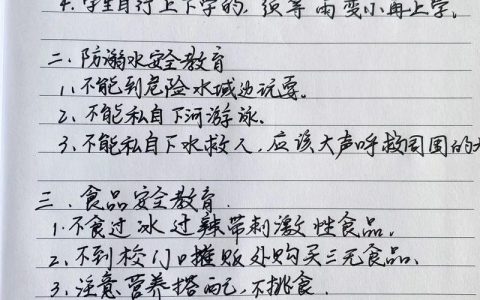 4、学生自行上下学的，须等雨变小再上学。
二、防溺水安全教育
1、不能到危险水域边玩耍。
2、不能私自下河游泳。
3、不能私自下水救人，应该大声呼救周围的
三、食品安全教育.
1、不食过冰过辣带刺激性食品.
2、不到校门口摊贩处购买三无食品、
3、注意营养搭配，不挑食.